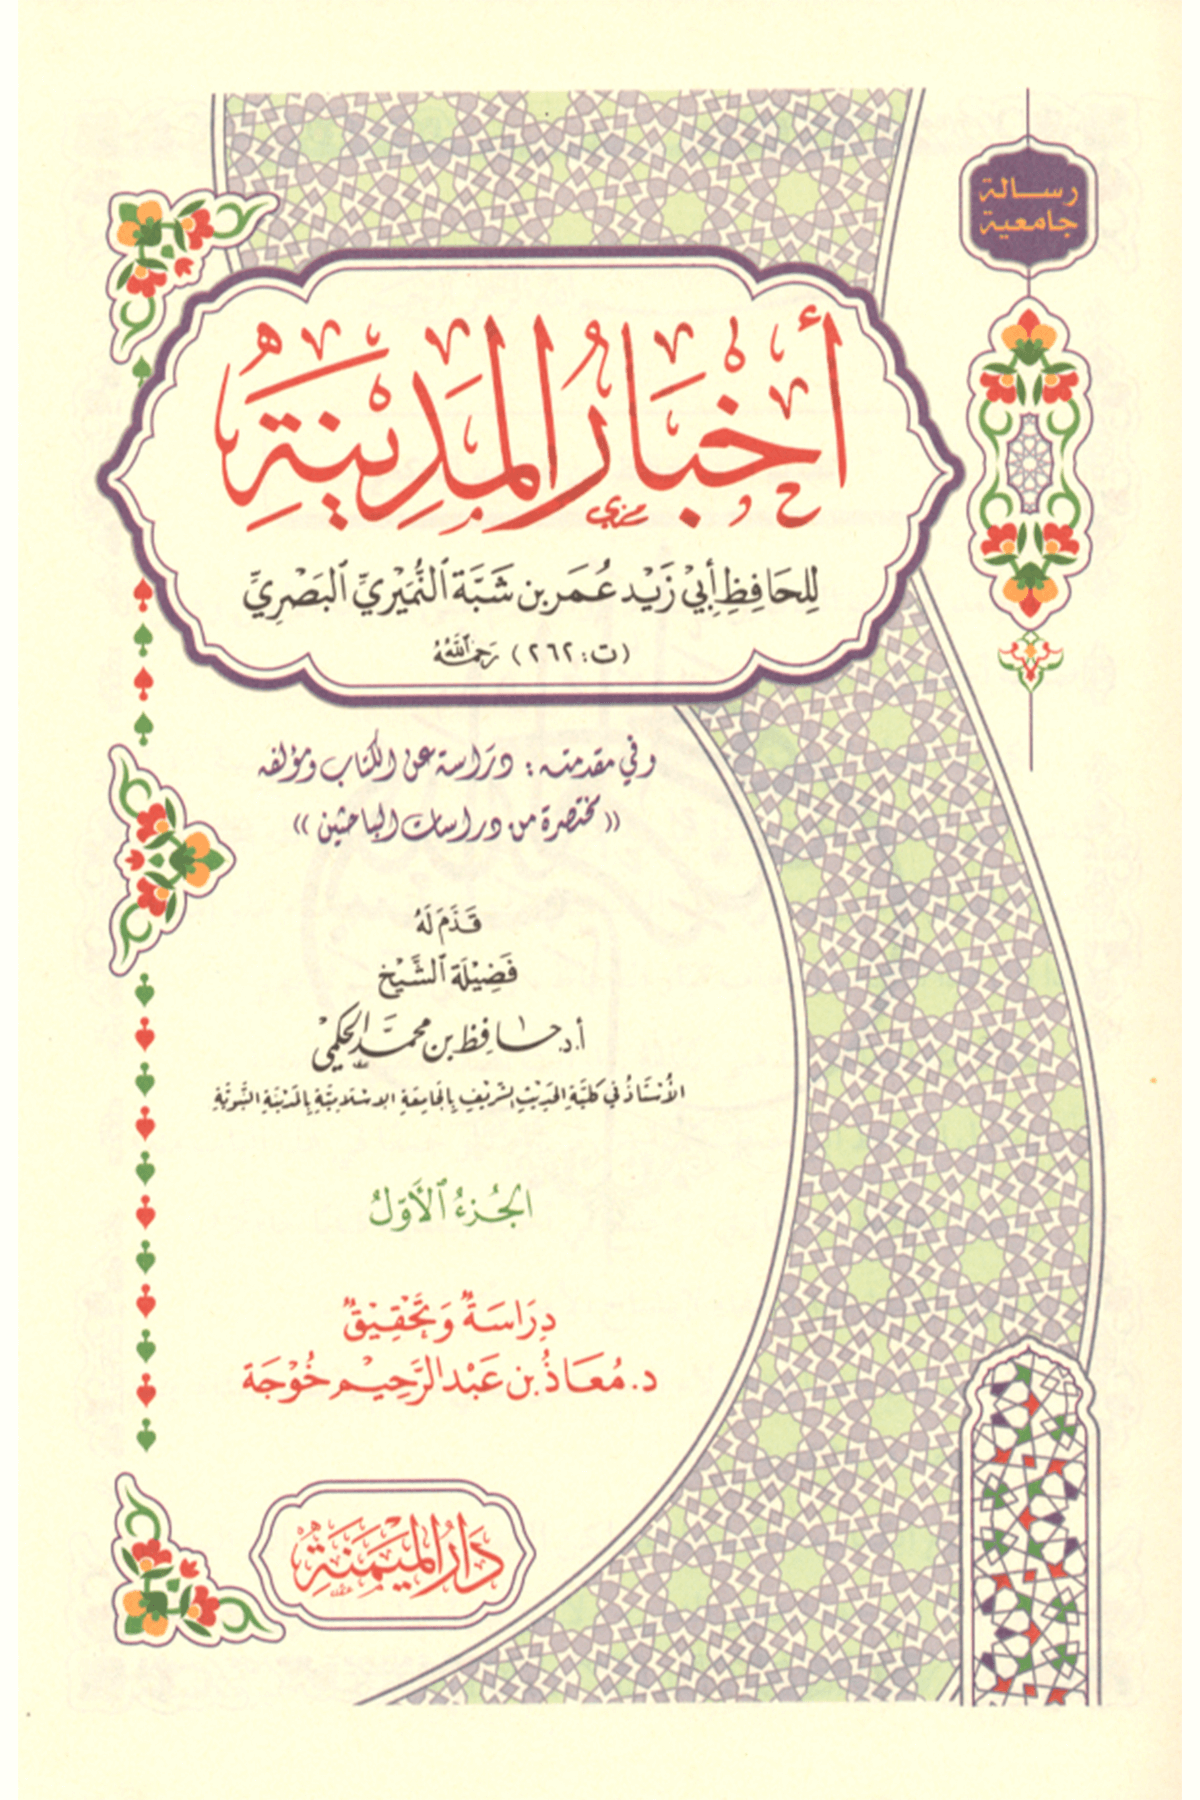 رسالة
جامعية
أَخْبَارُ المَدِينَةِ
لِلحَافِظِ أَبِيْ زَيْد عُمَر بن شَبَّة النُّمَيْرِيِّ البَصْرِيِّ
(ت: ٢٦٢) رَحِمَهُ اللَّهُ
وفي مقدمته: دراسة عن الكتاب ومؤلفه
((مختصرة من دراسات الباحثين))
قَدَّمَ لَهُ
فَضِيْلَة الشَّيْخ
أ.د. حافظ بن محمَّد الحكميْ
الأُسْتَاذُ فِي كُلِّيَّةِ الحَدِيْثِ الشَّرِيْفِ بِالجَامِعَةِ الإسْلَامِيَّةِ بِالمَدِيْنَةِ النَّبَوِيَّةِ
الجُزءُ الأَوّلُ
دِرَاسَةٌ وَتَحْقِيْقٌ
د. مُعَاذُ بن عَبْد الرَّحِيْم خُوْجَة
دَارُ المَيْمَنَةِ